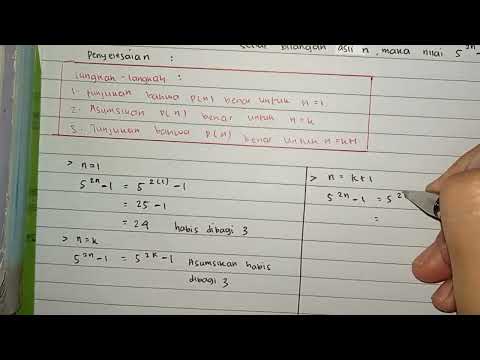 setiap bilangan asli n, maka nilai 5²ⁿ -
Penyelesaian :
Langkah-langkah :
1. Tunjukan bahwa P(n) benar untuk n = 1
2. Asumsikan P(n) benar untuk n = k
3. Tunjukan bahwa P(n) benar untuk n = k+1
> n = 1
5²ⁿ - 1 = 5²⁽¹⁾ - 1
= 25 - 1
= 24 habis dibagi 3
> n = k
5²ⁿ - 1 = 5²ᵏ - 1 Asumsikan habis
dibagi 3
> n = k + 1
5²ⁿ - 1 = 5²⁽
=